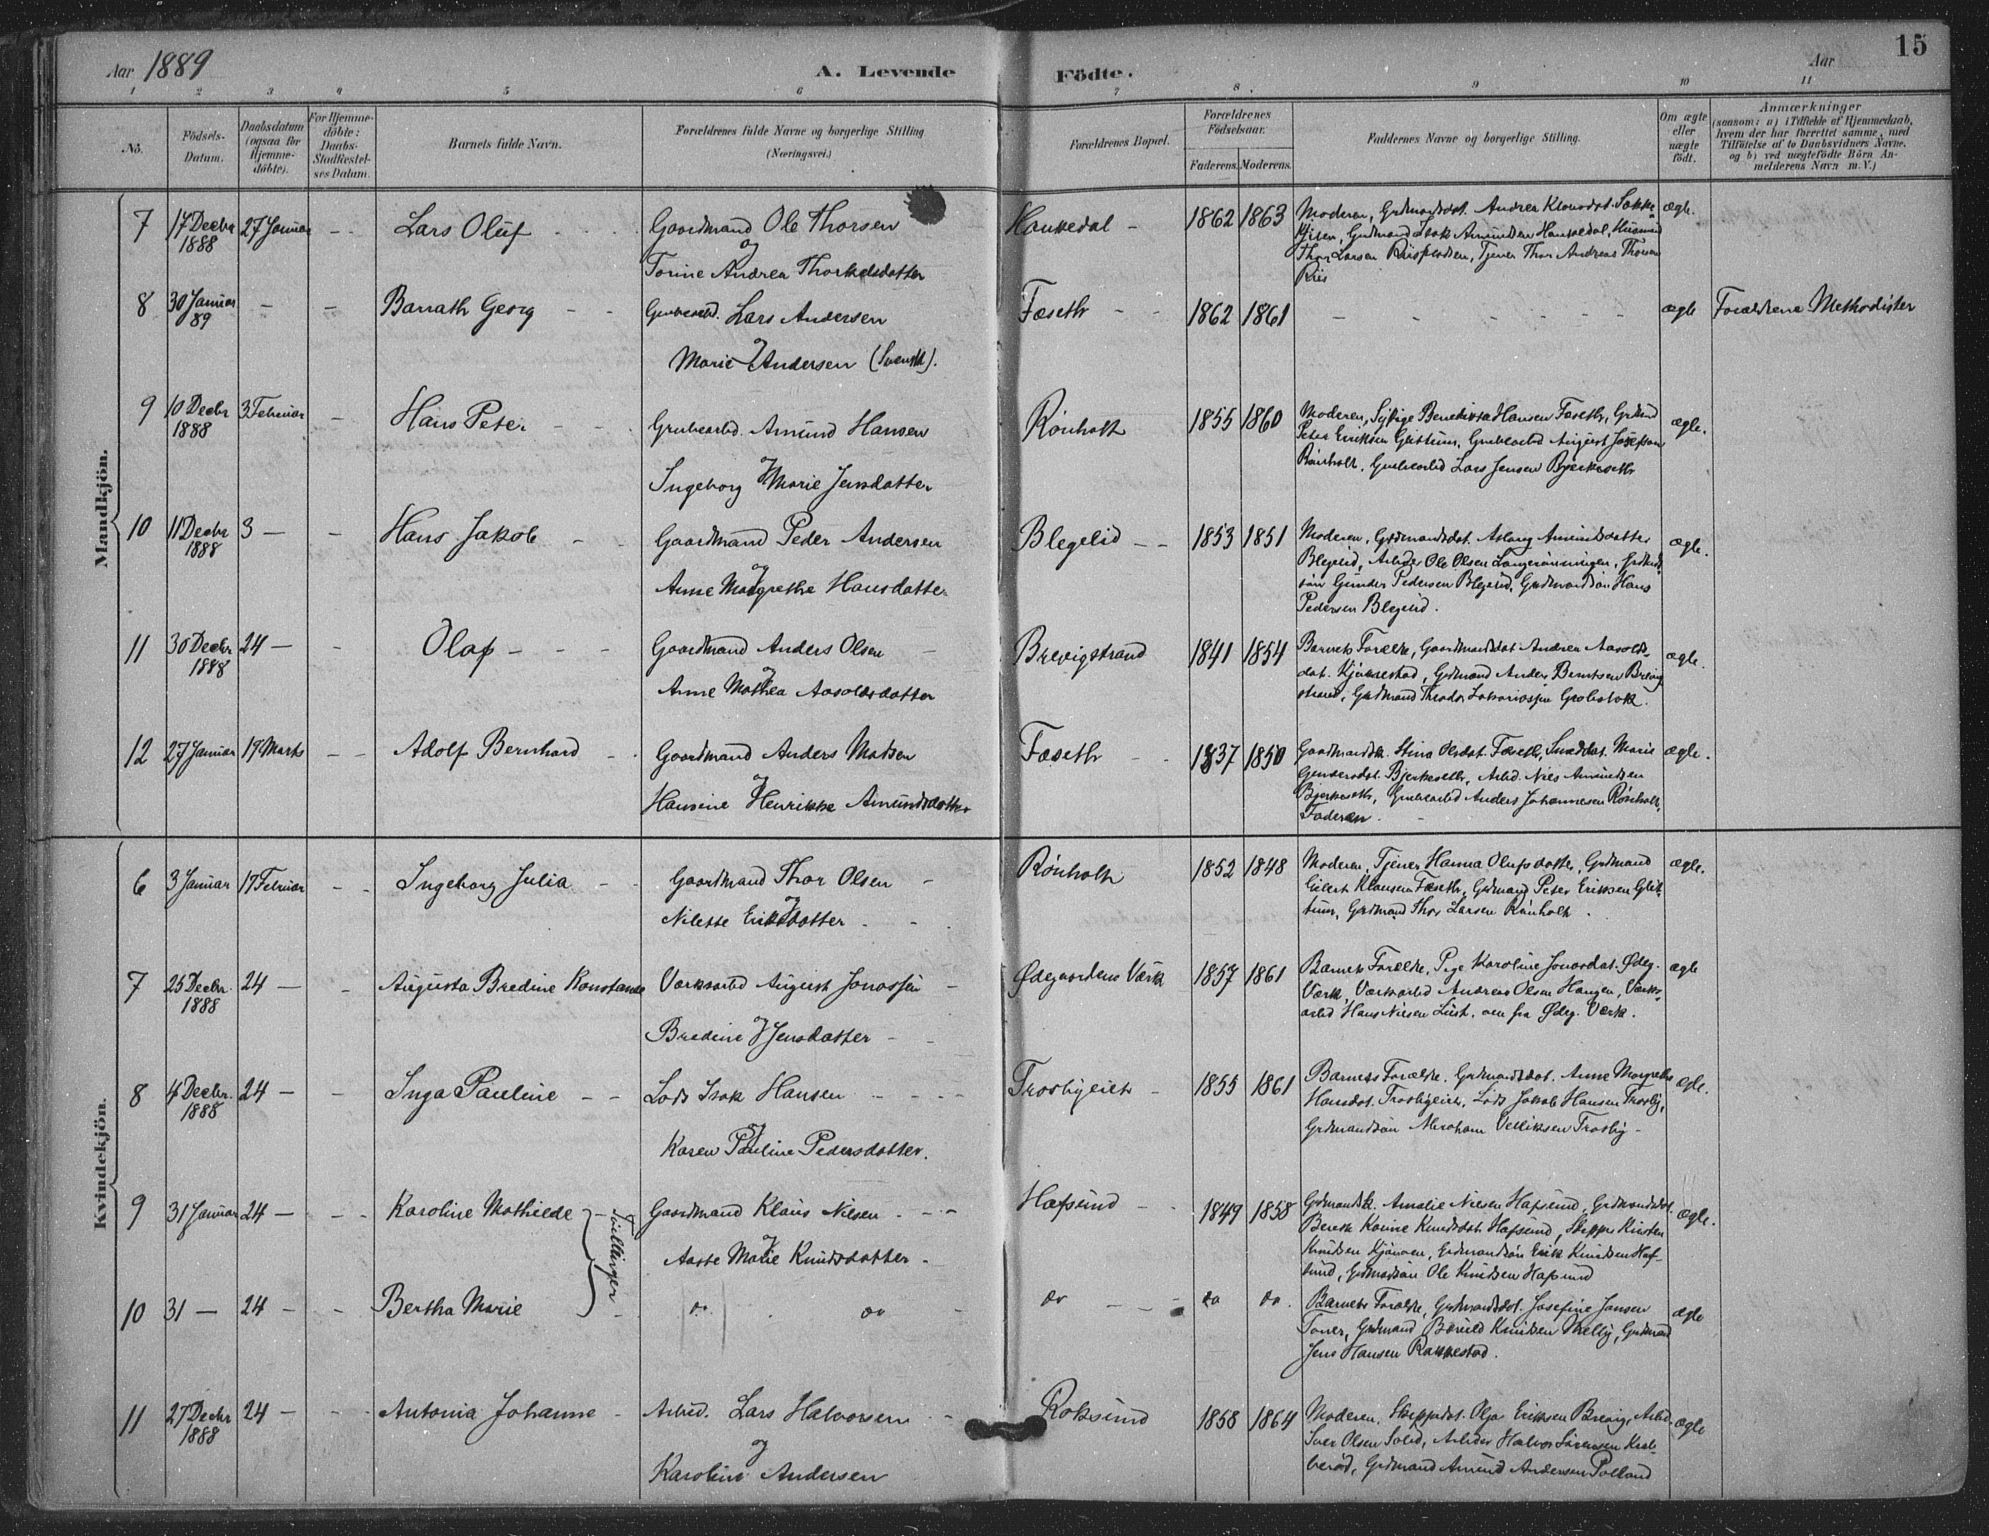 Aar 1889
A. Levende Födte.
Aar
15
1 2 3 4 5 6 7 8. 9 10 11
No.
Födsels-Datum.
Daabsdatum (ogsaa for Hjemme-döbte).
For Hjemme-döbte: Daabs-Stadfæstel-ses Datum.
Barnets fulde Navn.
Forældrenes fulde Navne og borgerlige Stilling (Næringsvei.)
Forældrenes Bopæl.
Forældrenes Födselsaar.
Faderens. Moderens.
Faddernes Navne og borgerlige Stilling.
Om ægte eller uægte födt.
Anmærkninger
(saasom: a) i Tilfælde af Hjemmedaab,
hvem der har forrettet samme, med
Tilföielse af to Daabsvidners Navne.
og b) ved uægtefödte Börn An-
melderens Navn m. V.)
Mandkjön.
7 17 Decbr 1888 27 Januar - - Lars Oluf
Gaardmand Ole Thorsen
og
Torine Andrea Thorkelsdatter
Haukedal - 1862 1863
Moderen, Grdmandsdat. Andrea Klausdat.
Gudmand Isak Amundsen Haukedal, Husmand
Thor Larsen Tjener Thor Andreas Thorsen
Riis
ægte.
8 30 Januar 89 - - Barrath Georg - -
Grubearbd. Lars Andersen
og
Marie Andersen (Svensk).
Fæseth - - 1862 1861 - - - - - - ægte Forældrene Methodister
9 10 Decbr 1888 3 Februar - Hans Peter - -
Grubearbd. Amund Hansen
og
Ingeborg Marie Jensdatter
Rönholt 1855 1860
Moderen, Hansen Fæseth, Grdmd
Peter Eriksen Glittum, Grubearbd August Josefsen
Rönholt, Grubearbd Lars Jensen Bjerkeseth
ægte.
10 11 Decbr 1888 3 - - Hans Jakob - -
Gaardmand Peder Andersen
og
Anne Margrethe Hansdatter
Blegelid - - 1853 1851
Moderen, Grdmandsdat. Aslaug Amundsdatter
Blegelid, Arbeider Ole Olsen
sön Gunder Pedersen Blegelid, Grdmandsön Hans
Pedersen Blegelid.
ægte.
11 30 Decbr 1888 24 - - Olaf - - -
Gaardmand Anders Olsen -
og
Anne Mathea Aasoldsdatter
Brevigstrand 1841 1854
Barnets Forældre, Gaardmandsdat Andrea Aasolds-
dat. Kjerkestad, Grdmand Anders Berntsen Brevig
strand, Grdmand Theodor Zakariassen Grobstok.
ægte.
12 27 Januar 19 Marts - - Adolf Bernhard -
Gaardmand Anders Matsen
og
Hansine Henrikke Amundsdatter
Fæseth - - 1837 1850
Gaardmandsk. Stina Olsdat. Fæseth, Marie
Gundersdat. Bjerkeseth, Arbd. Niels Amundsen
Bjerkeseth, Grubearbd Anders Johannesen Rönholt,
Faderen.
ægte.
Kvindekjön.
6 3 Januar 17 Februar - - Ingeborg Julia - -
Gaardmand Thor Olsen -
og
Nilette Eriksdatter - -
Rönholt 1852 1848
Moderen, Tjener Hanna Olufsdatter, Grdmand
Eilert Klausen Fæseth, Grdmand Peter Eriksen Glit-
tum, Grdmand Thor Larsen Rönholt.
ægte.
7 25 Decbr. 1888 24 - - Augusta Bredine Konstanse
Værksarbd August Jonassen -
og
Bredine Jensdatter - -
Ødegaardens Værk 1857 1861
Barnets Forældre, Pige Karoline Jonasdat. Ødeg.
Værk, Værksarbd Andreas Olsen Haugen, Værks-
arbd Hans Nielsen Lust, fra Ødeg. Værk.
ægte
8 4 Decbr. 1888 24 - - Inga Pauline - -
Lods Isak Hansen - - -
og
Karen Pauline Pedersdatter.
Trosbyeiet - 1855 1861
Barnets Forældre, Grdmandsdat. Anne Margrethe
Hansdat. Trosbyeiet, Lods Jakob Hansen Trosby,
Grdmandsön Abraham Trosby -
ægte.
9 31 Januar 24 - - - Karoline Mathilde -
Tvillinger
Gaardmand Klaus Nilsen - - -
og
Aaste Marie Knudsdatter -
Hafsund - - 1849 1858
Grdmandsk. Amalie Nielsen Hafsund, Grdmandsdat.
Karine Knudsdat. Hafsund, Skipper Kristen
Knudsen Grdmandsön Erik Knudsen Haf-
sund, Grdmandsön Ole Knudsen Hafsund
ægte.
10 31 - 24 - - Bertha Marie -
do. do -
do - - - do do.
Barnets Forældre, Grdmandsdat. Josefine Jansen
Grdmand Knudsen Grdmand
Jens Hansen Rakkestad.
ægte
11 27 Decbr 1888 24 - - - Antonia Johanne -
Arbd. Lars Halvorsen - -
og
Karoline Andersen
Roksund 1858 1864
Moderen, Skipperdat. Olga Eriksen Brevig, Arbd.
Olsen Arbeider Halvor Sörensen
Grdmand Amund Andersen
ægte